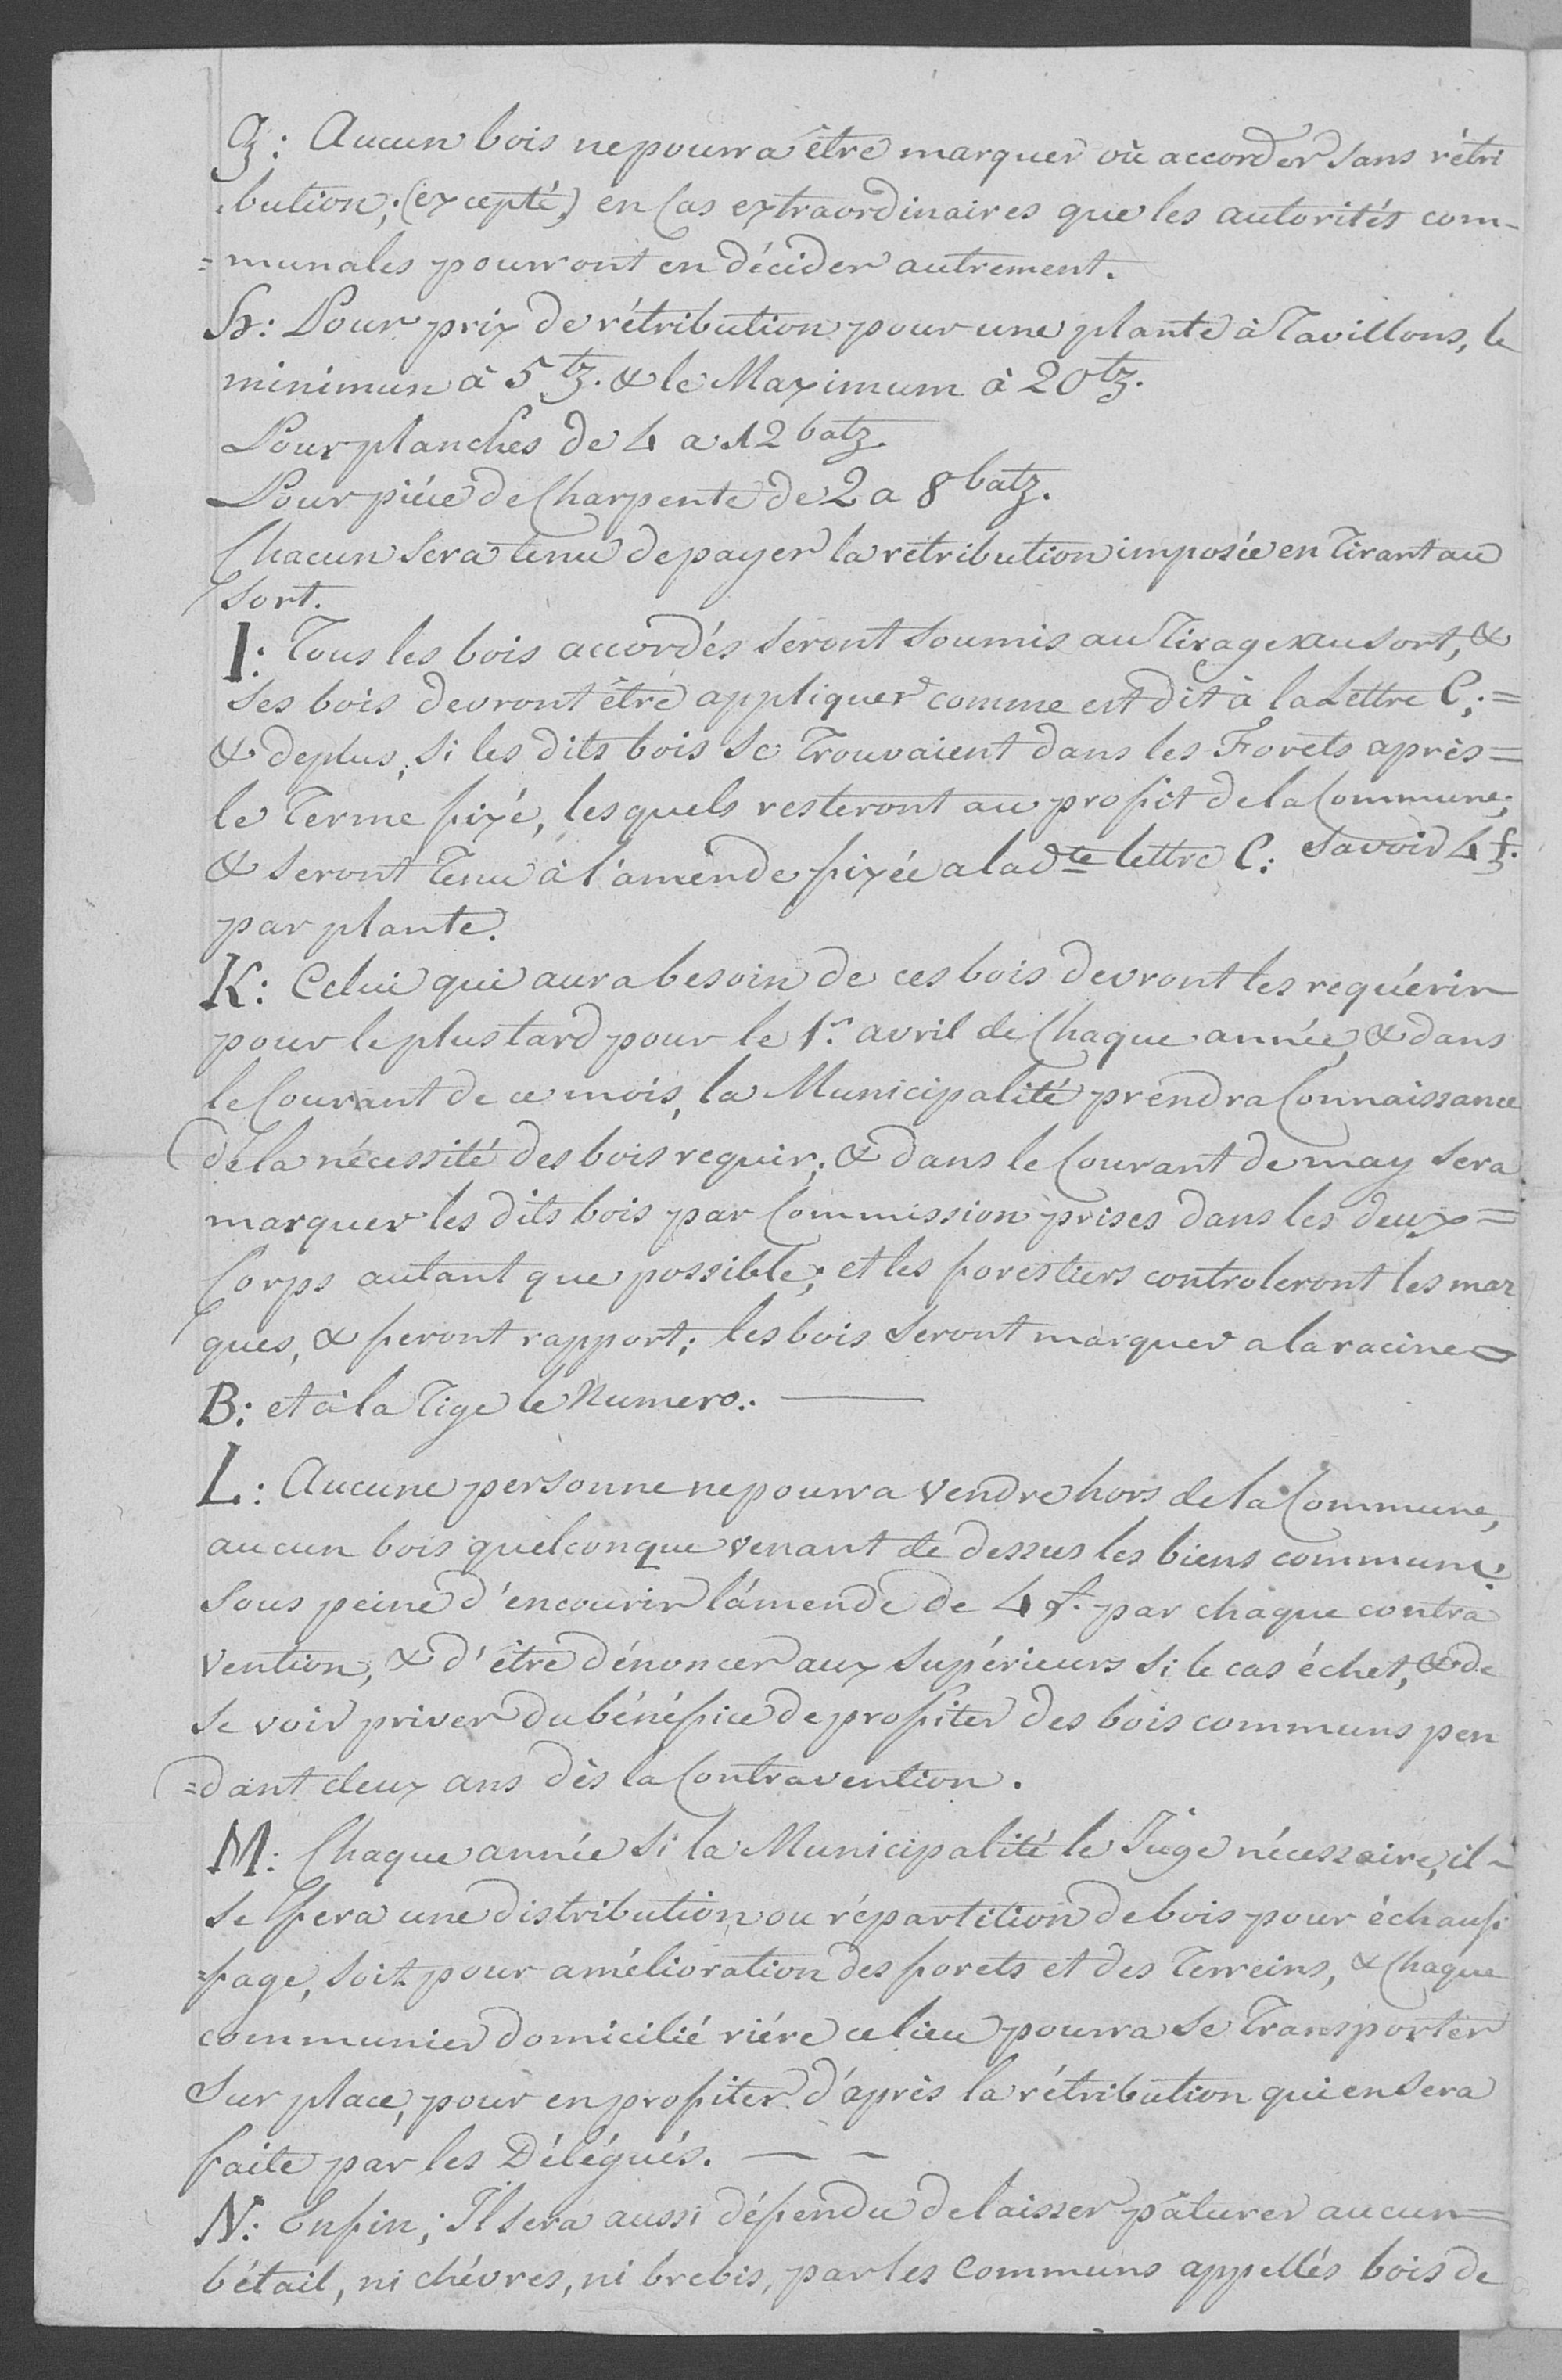 G: Aucun bois ne pourra être marquer où accorder sans rétri
-bution; (excepté,) en Cas extraordinaires que les autorités com-
=munales pourront en décider autrement.
H: Pour prix de rétribution pour une plante à Tavillons, le
minimun à 5 tz. & le Maximum à 20 tz.
Pour planches de 4 a 12 batz.
Pour piéce de Charpente de 2 a 8 batz.
Chacun sera tenu de payer la rétribution imposée en Tirant au
sort.
I: Tous les bois accordés seront soumis au Tirage au sort, &
ses bois devront être appliquer comme est dit à la Lettre C; =
& deplus, si les dits bois se Trouvaient dans les Forêts après =
le Terme fixé, lesquels resteront au profit de la Commune,
& seront Tenu à l'amende fixée a la dte lettre C: Savoir 4 f.
par plante.
K: Celui qui aura besoin de ces bois devront les requérir
pour le plus tard pour le 1r. avril de Chaque année, & dans
le Courant de ce mois, la Municipalité prendra Connaissance
de la nécessité des bois requir; & dans le Courant de may sera
marquer les dits bois par Commission prises dans les deux =
Corps autant que possible; et les forestiers controleront les mar
ques, & feront rapport; les bois seront marquer a la racine
B: et à la Tige le Numero. —
L: Aucune personne ne pourra vendre hors de la Commune,
aucun bois quelconque venant de dessus les biens communs.
sous peine d'encourir l'amende de 4 f. par chaque contra
vention, & d'être dénoncer aux supérieurs si le cas échet, & de
se voir priver du bénéfice de profiter des bois communs pen
=dant deux ans dès la Contravention.
M: Chaque année si la Municipalité le Juge nécessaire, il -
se fera une distribution ou répartition de bois pour échauf
=fage, soit pour amélioration des forets et des Terreins, & Chaque
communier domicilié riére ce lieu pourra se Transporter
sur place, pour en profiter d'après la rétribution qui en sera
faite par les Délégués. — -
N: Enfin; Il sera aussi défendu de laisser pâturer aucun =
bétail, ni chévres, ni brebis, par les Communs appellés bois de